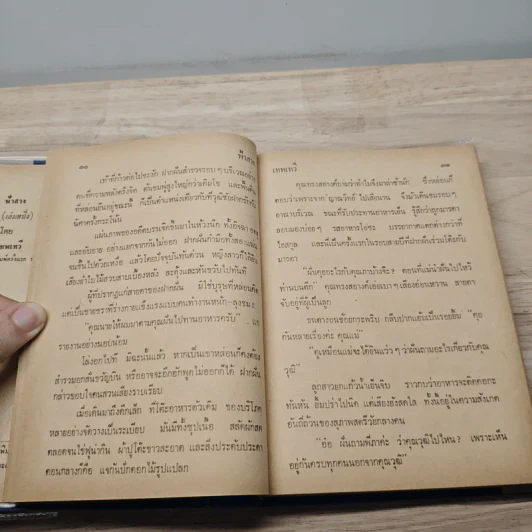 ฟ้าสาง
(เล่มหนึ่ง)
โดย
เทพเทวี
๓๐
ฟ้าสาง
เท้าที่ก้าวต่อไปชะงัก ฝากฝันสำรวจรอบๆ บริเวณอย่าง
คนที่ความหลังครั้งจิต ต้นชมพู่สูงใหญ่กว่าเดิมโข และพื้นดิน
ที่หล่อนยืนอยู่ขณะนี้ ก็เป็นตำแหน่งเดียวกับที่วุฒิชัยฝากรอยจูบ
นัดหาครั้งกระโน้น
ขนชื้นไปด้วยเหงื่อ แล้วโดยปัจจุบันทันด่วน หญิงสาวก็ได้ยิน
เสียงย่ำใบไม้สวบสาบเบื้องหลัง สะดุ้งและหันขวับไปทันที
ผู้ที่ปรากฏแก่สายตาของฝากฝัน มิใช่บุรุษที่หล่อนคิด
แต่เป็นชายชราที่ร่างกายแข็งแรงแบบคนทำงานหนัก-ลุงชม!
“คุณนายให้ผมมาตามคุณฝันไปทานอาหารครับ” แก
รายงานอย่างนอบน้อม
โล่งอกไปที มิฉะนั้นแล้ว หากเป็นเขาหล่อนก็คงต้อง
สำรวมอกสั่นขวัญบิน หรืออาจจะอึกอักพูดไม่ออกก็ได้ ฝากฝัน
กล่าวขอบใจคนสวนเสียงราบเรียบ
เมื่อเดินมาถึงตึกเล็ก ที่โต๊ะอาหารตัวเดิม ของบริโภค
หลายอย่างจัดวางเป็นระเบียบ มันมีทั้งซุปเนื้อ สลัดผักสด
ตลอดจนไข่ฟูน่ากิน ผ้าปูโต๊ะขาวสะอาด และสิ่งประดับประดา
ตอนกลางก็คือ แจกันปักดอกไม้รูปแปลก
เทพเทวี
๓๑
คุณทรงสอางค์ถามว่าทำไมจึงมาล่าช้านัก ซึ่งหล่อนก็
ตอบว่าเพราะจาก ญาณวิทย์ ไปเสียนาน จึงมัวเดินชมรอบๆ
อาณาบริเวณ ขณะที่รับประทานอาหารเย็น รู้สึกว่าถูกมารดา
ลอบมองบ่อยๆ รสอาหารโอชะ บรรยากาศแตกต่างกว่าที่
ไอสกูล และนี่เป็นครั้งแรกในรอบสามปีที่ฝากฝันร่วมโต๊ะกับ
มารดา
“ฝันคุยอะไรกับคุณภาบ้างจ๊ะ? ตอนที่แม่นำฝันไปไหว้
ท่านบนตึก” คุณทรงสอางค์เอ่ยเบาๆ เสียงอ่อนหวาน สายตา
จับอยู่ที่ผู้เป็นลูก
รดคางงอนชักยกระพริบ กลีบปากแย้มเป็นรอยยิ้ม “คุย
กันหลายเรื่องค่ะ คุณแม่”
“ดูเหมือนแม่จะได้ยินแว่วๆ ว่าฝันถามอะไรเกี่ยวกับคุณ
วุฒิ”
ลูกสาวยกแก้วน้ำเย็นจิบ ราวกับว่าอาหารจะติดคอกะ
ทันหัน ยิ้มปร่าไปนิด แต่เสียงยังสดใส ทั้งนี้อยู่ในความสังเกต
อันถี่ถ้วนของสุภาพสตรีวัยกลางคน
“อ๋อ ฝันถามพี่ภาค่ะ ว่าคุณวุฒิไปไหน? เพราะเห็น
อยู่กันครบทุกคนนอกจากคุณวุฒิ”